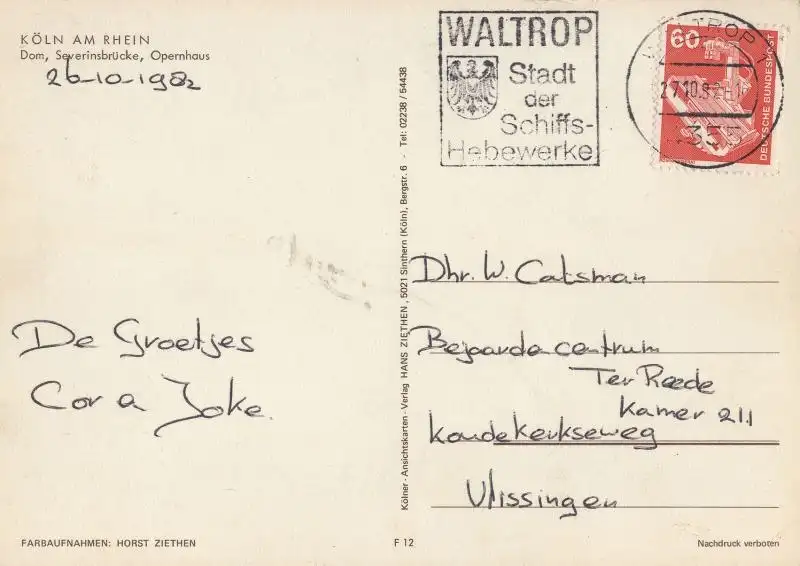 KÖLN AM RHEIN
Dom, Severinsbrücke, Opernhaus
26-10-1982
De Groetjes
Cor a Joke.
FARBAUFNAHMEN: HORST ZIETHEN
Kölner-Ansichtskarten-Verlag HANS ZIETHEN, 5021 Sinthern (Köln), Bergstr. 6 - Tel: 02238 / 54438
F 12
WALTROP
Stadt
der
Schiffs-
Hebewerke
WALTROP
27.10.82
355
60
DEUTSCHE BUNDESPOST
Dhr. W. Catsman
Bejaarden centrum
Ter Reede
Kamer 211
Koudekerkseweg
Vlissingen
Nachdruck verboten